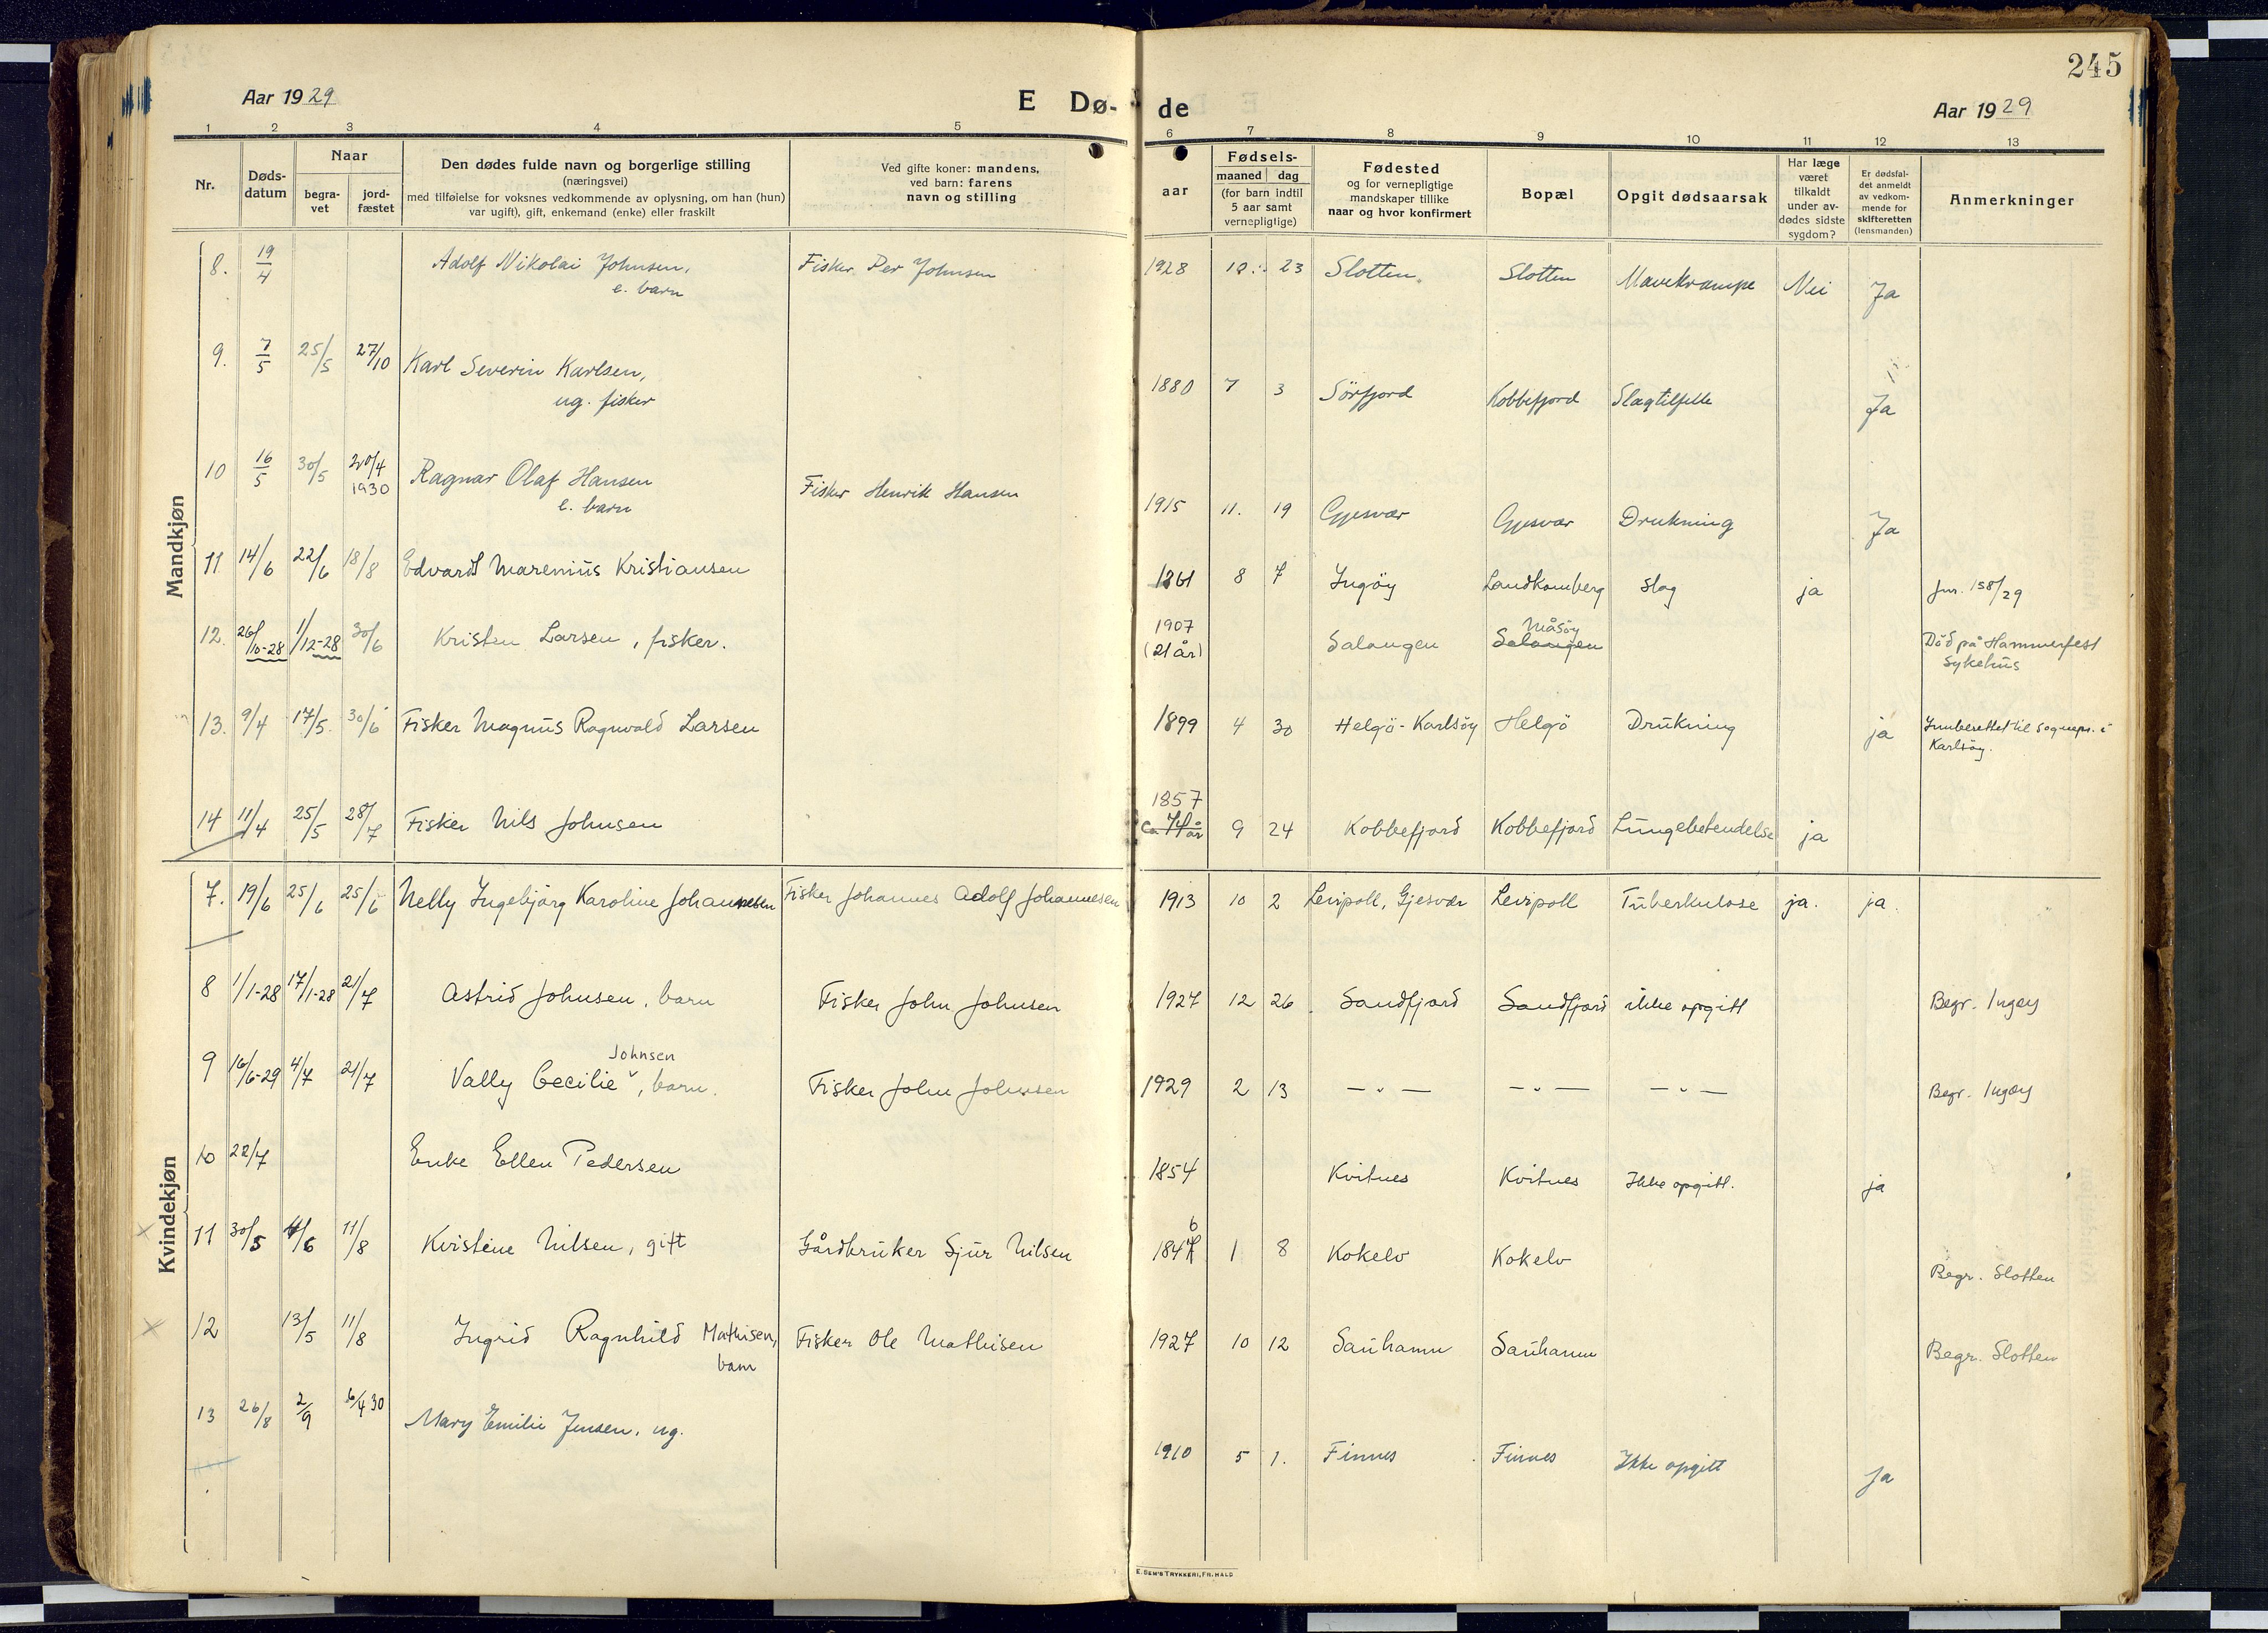 245
Aar 1929 E Dø- de Aar 1929
1 2 3 4 5 6 7 8 9 10 11 12 13
Nr.
Døds-
datum
Naar
begra-
vet
jord-
fæstet
Den dødes fulde navn og borgerlige stilling
(næringsvei)
med tilføielse for voksnes vedkommende av oplysning, om han (hun)
var ugift), gift, enkemand (enke) eller fraskilt
Ved gifte koner: mandens,
ved barn: farens
navn og stilling
aar
Fødsels-
maaned dag
(for barn indtil
5 aar samt
vernepligtige)
Fødested
og for vernepligtige
mandskaper tillike
naar og hvor konfirmert
Bopæl
Opgit dødsaarsak
Har læge
været
tilkaldt
under av-
dødes sidste
sygdom?
Er dødsfal-
det anmeldt
av vedkom-
mende for
skifteretten
(lensmanden)
Anmerkninger
Mandkjøn
8. 19/4 Adolf Nikolai Johnsen, Fisker Per Johnsen 1928 23 Slotten Slotten Mavekrampe Nei Ja
e. barn
9. 7/5 25/5 27/10 Karl Severin Karlsen, 1880 7 3 Sörfjord Kobbefjord Slagtilfelle Ja
ug. fisker
10 16/5 30/5 20/4 1930 Ragnar Olaf Hansen Fisker Henrik Hansen 1915 11. 19 Gjesvær Gjesvær Drukning Ja
e. barn
11 14/6 22/6 18/8 Edvard Marenius Kristiansen 1861 8 7 Ingöy Landkamberg slag ja Jnr. 158/29
12. 26/10-28 1/12-28 30/6 Kristen Larsen, fisker. 1907 (21 år) Salangen Salangen Måsöy Död på Hammerfest
sykehus
13. 9/4 17/5 30/6 Fisker Magnus Ragnvald Larsen 1899 4 30 Helgö-Karlsöy Helgö Drukning ja Innberettet til sognepr. i
Karlsöy.
14 11/4 25/5 28/7 Fisker Nils Johnsen 1857 ca 74 år 9 24 Kobbefjord Kobbefjord Lungebetendelse ja
Kvindekjøn
7. 19/6 25/6 25/6 Nelly Ingebjørg Karoline Johannesen Fisker Johannes Adolf Johannesen 1913 10 2 Leirpoll, Gjesvær Leirpoll Tuberkulose ja. ja.
8 1/1-28 17/1-28 21/7 Astrid Johnsen, barn Fisker John Johnsen 1927 12 26 Sandfjord Sandfjord ikke opgitt Begr. Ingøy
9 16/6-29 4/7 21/7 Vally Cecilie Johnsen, barn. Fisker John Johnsen 1929 2 13 — " — — " — — " — Begr. Ingøy
10 22/7 Enke Ellen Pedersen 1854 Kvitnes Kvitnes Ikke opgitt. ja
11 30/5 4/6 11/8 Kristine Nilsen, gift Gårdbruker Sjur Nilsen 1846 1 8 Kokelv Kokelv Begr. Slotten
12 13/5 11/8 Ingrid Ragnhild Mathisen, Fisker Ole Mathisen 1927 10 12 Sauhamn Sauhamn Begr. Slotten
barn
13 26/8 2/9 6/4 30 Mary Emilie Jensen, ug. 1910 5 1. Finnes Finnes Ikke opgitt Ja
E. SEM'S TRYKKERI, FR.HALD